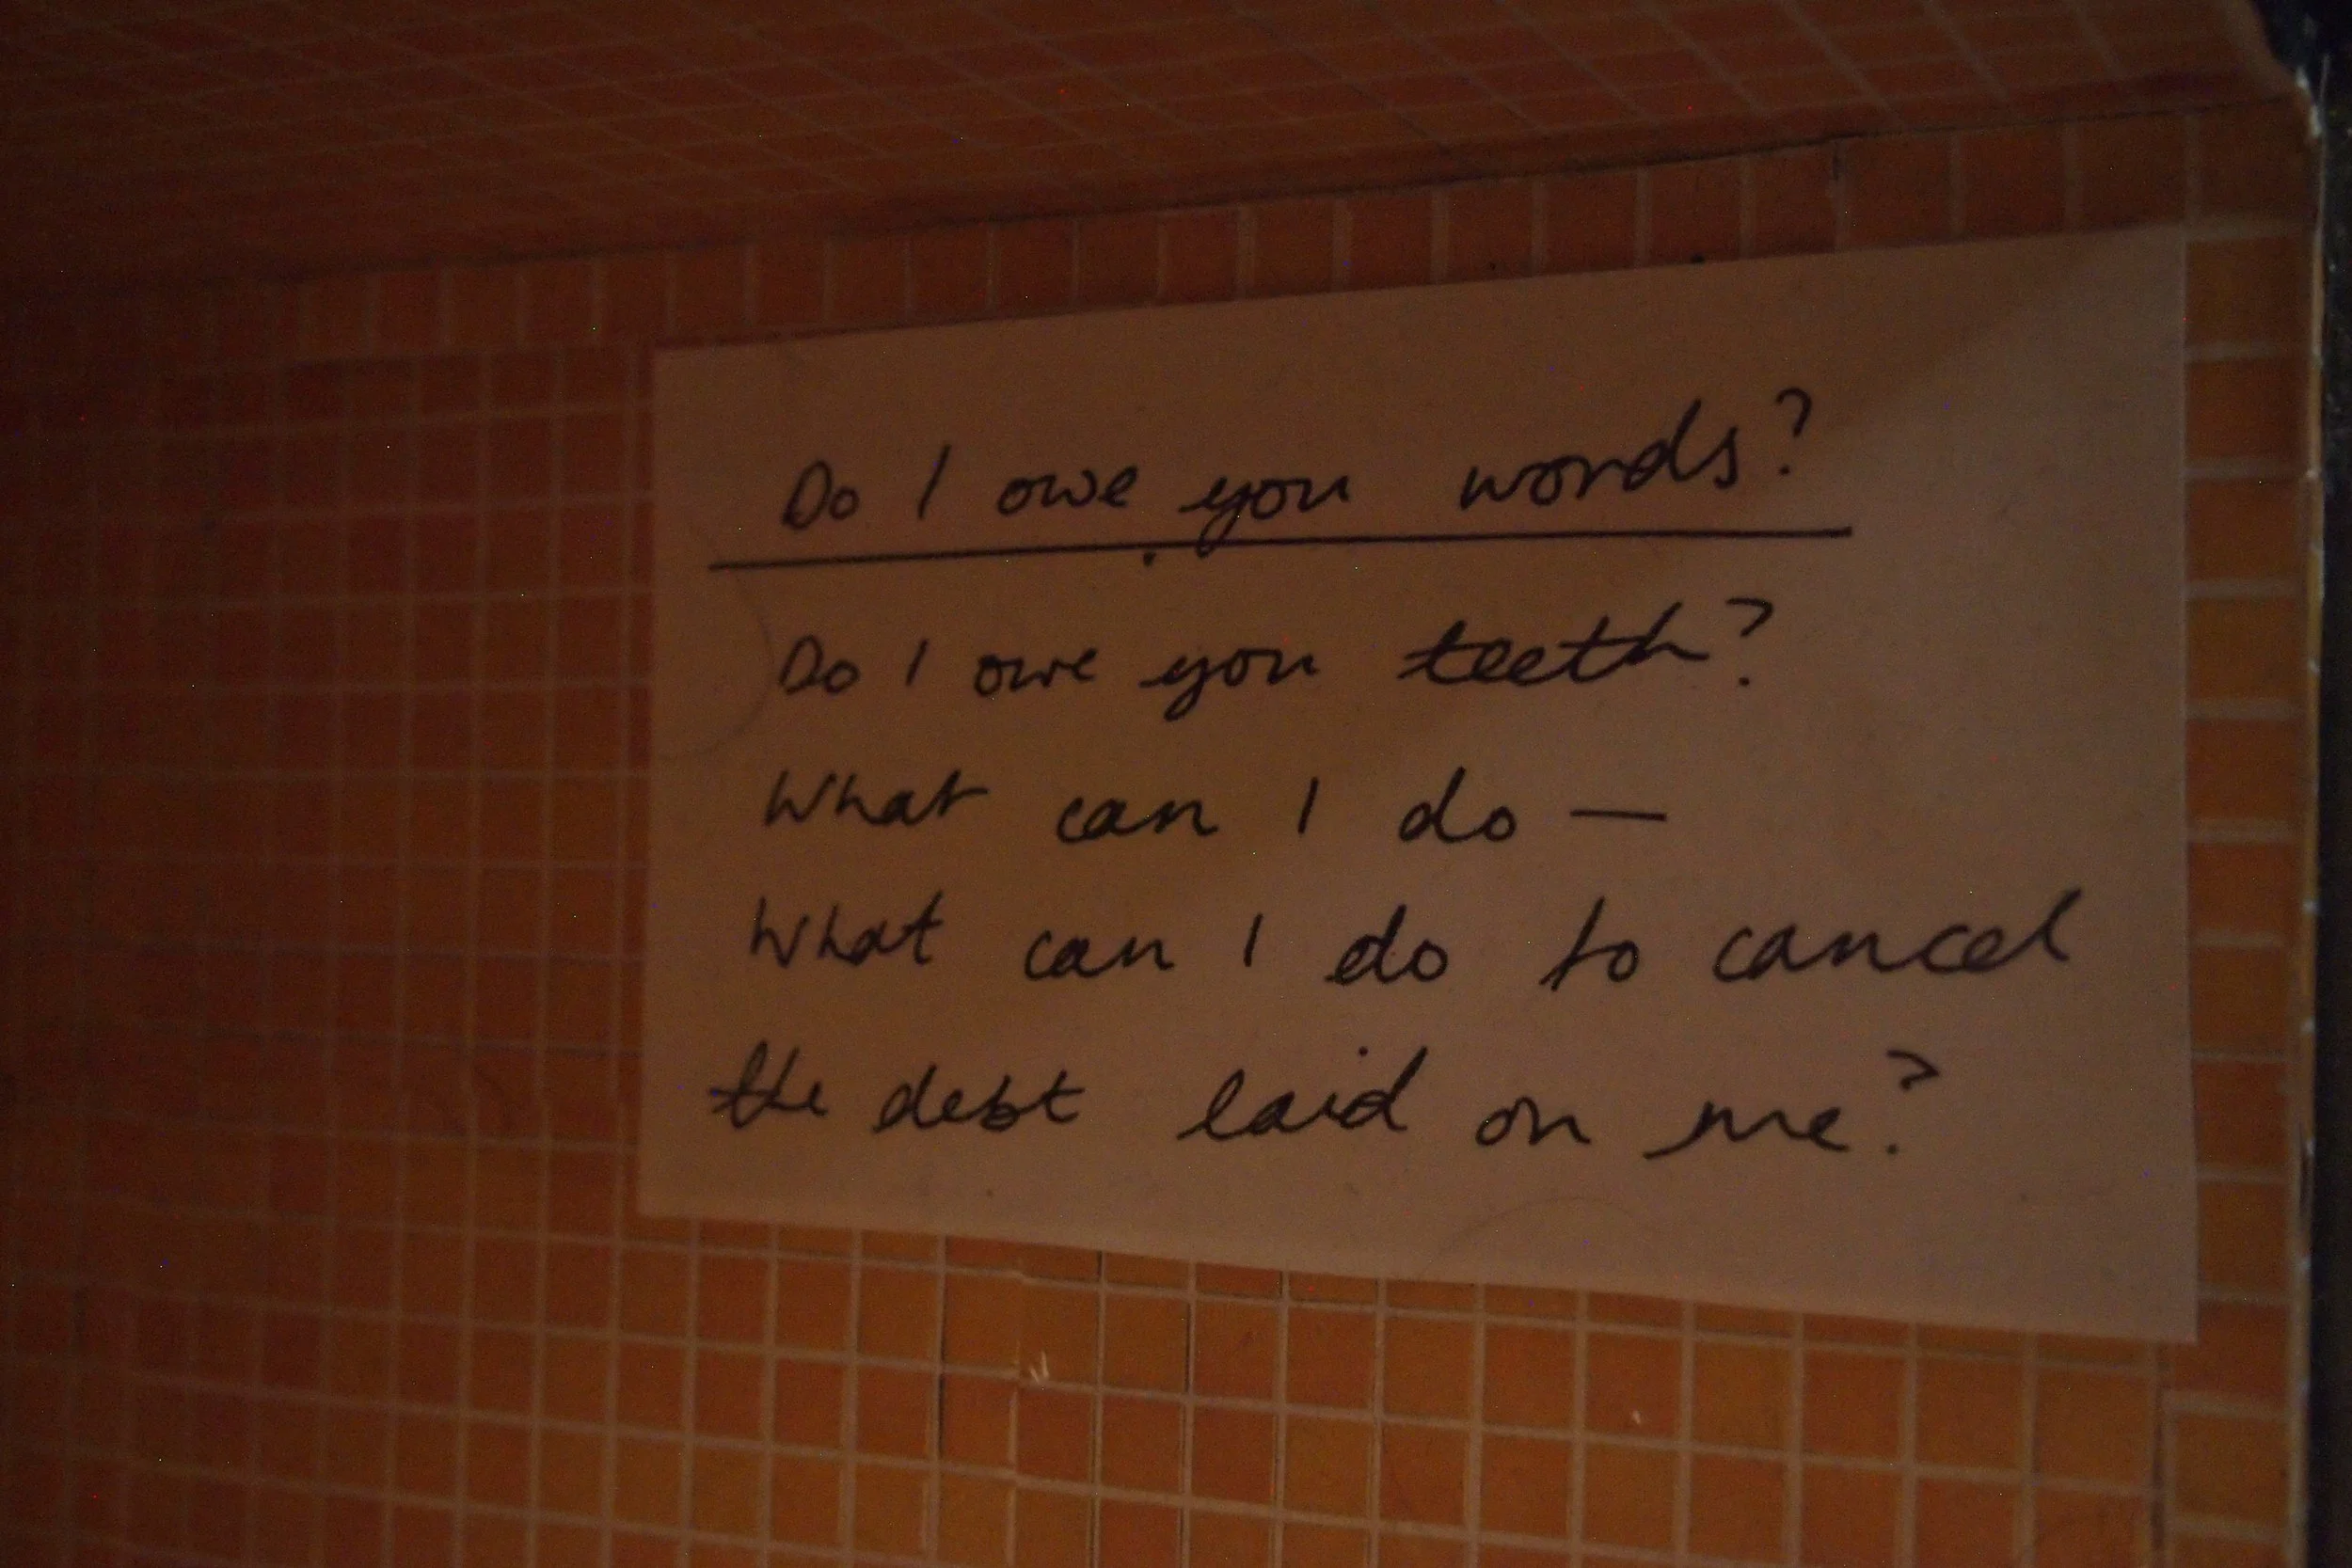 Do I owe you words?
Do I owe you teeth?
What can I do —
What can I do to cancel
the debt laid on me?